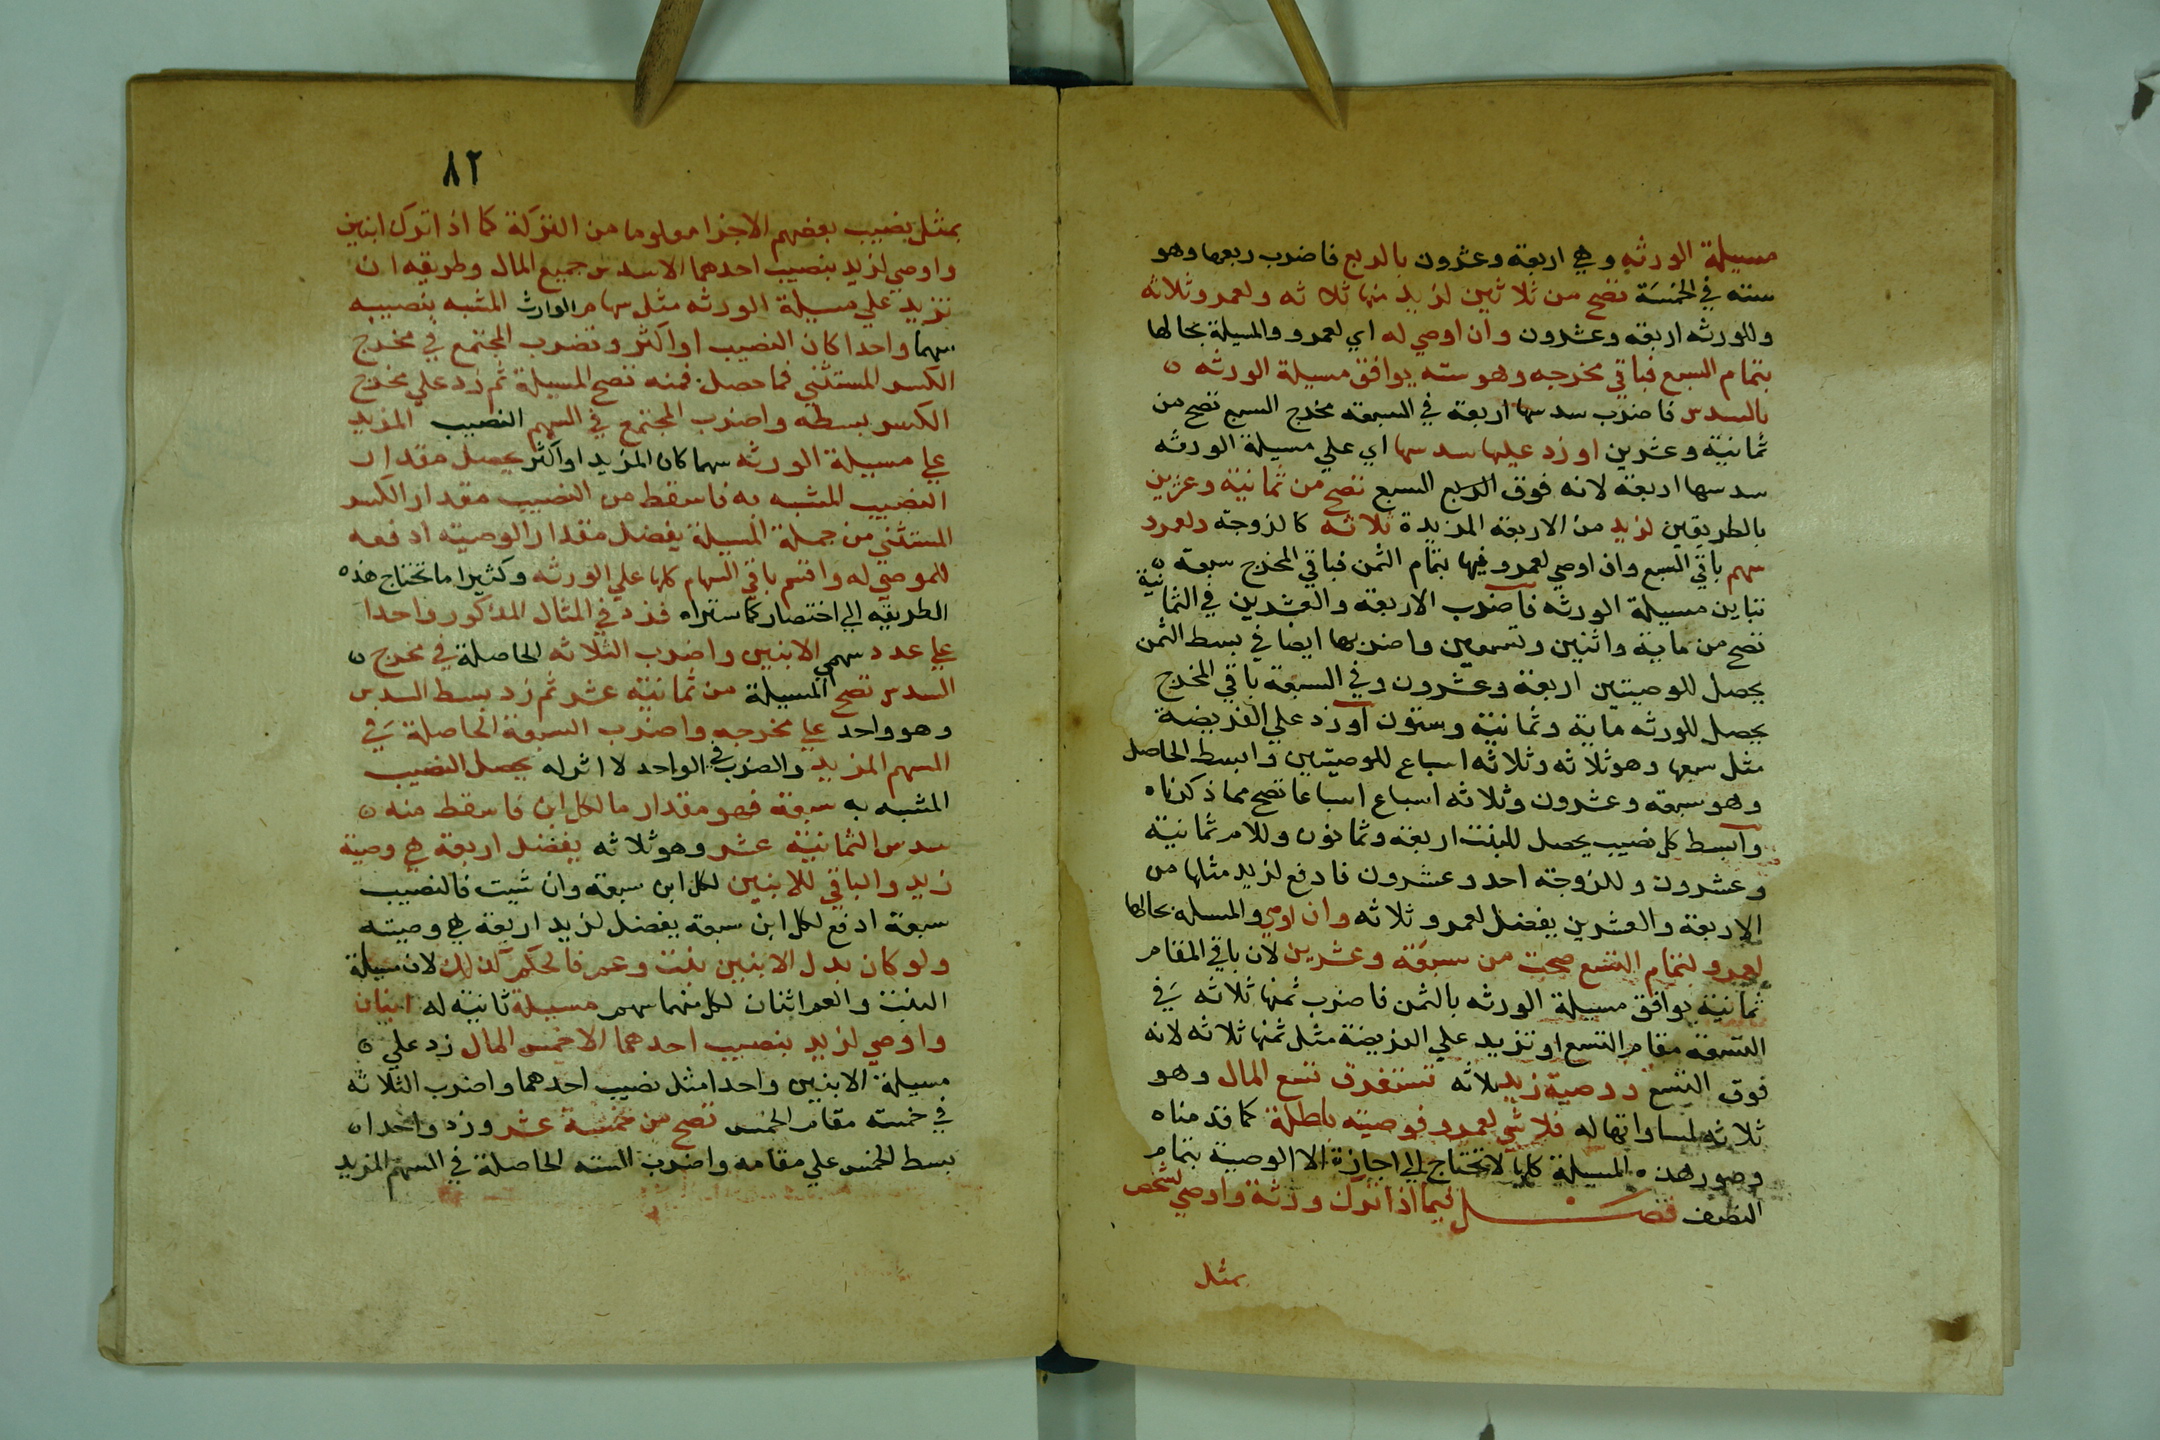 مسيلة الورثه وهي اربعة وعشرون بالربع فاضرب ربعها وهو
سته في الخمسة تصح من ثلاثين لزيد منها ثلاثه ولعمرو ثلاثه
وللورثه اربعه وعشرون وان اوصي له اي لعمرو والمسيلة بحالها
بتمام السبع فباقي مخرجه وهو سته يوافق مسيلة الورثه ه
بالسدس فاضرب سدسها اربعة في السبعه مخرج السبع تصح من
ثمانية وعشرين او زد عليها سدسها اي علي مسيلة الورثه
سدسها اربعة لانه فوق الربع السبع تصح من ثمانية وعشرين
بالطريقين لزيد من الاربعه المزيدة ثلاثه كالزوجة ولعمرو
سهم باقي السبع وان اوصي لعمرو فيها بتمام الثمن فباقي المخرج سبعة ه
تباين مسيلة الورثه فاضرب الاربعة والعشرين في الثمانية
تصح من ماية واثنين وتسعين واضربها ايضا في بسط الثمن
يحصل للوصيتين اربعة وعشرون وفي السبعة باقي المخرج
يحصل للورثه ماية وثمانية وستون او زد علي الفريضة
مثل سبعها وهو ثلاثه وثلاثه اسباع للوصيتين وابسط الحاصل
وهو سبعه وعشرون وثلاثه اسباع اسباعا تصح مما ذكرناه
وابسط كل نصيب يحصل للبنت اربعة وثمانون وللام ثمانية
وعشرون وللزوجة احد وعشرون فادفع لزيد مثلها من
الاربعة والعشرين يفضل لعمرو ثلاثه وان اوصي والمسلة بحالها
لعمرو بتمام التسع صحت من سبعة وعشرين لان باقي المقام
ثمانية يوافق مسيلة الورثه بالثمن فاضرب ثمنها ثلاثه في
التسعة مقام التسع او تزيد علي الفريضة مثل ثمنها ثلاثه لانه
فوق التسع ووصية زيد ثلاثه تستغرق تسع المال وهو
ثلاثه لمساواتها له فلا شي لعمرو فوصيته باطلة كما قدمناه
وصور هذه المسيلة كلها لا تحتاج الي اجازة الا الوصية بتمام
النصف فصل فيما اذا ترك ورثة واوصي لشخص
بمثل
٨٢
بمثل نصيب بعضهم الا جزا معلوما من التركة كما اذا ترك ابنين
واوصي لزيد بنصيب احدهما الا سدس جميع المال وطريقه ان
تزيد علي مسيلة الورثه مثل سهام الوارث المشبه بنصيبه
سهما واحدا كان النصيب او اكثر وتضرب المجتمع في مخرج
الكسر المستثني فما حصل فمنه تصح المسيلة ثم زد علي مخرج
الكسر بسطه واضرب المجتمع في السهم النصيب المزيد
علي مسيلة الورثه سهما كان المزيد او اكثر يحصل مقدار
النصيب المشبه به فاسقط من النصيب مقدار الكسر
المستثني من جملة المسيلة يفضل مقدار الوصيه ادفعه
للموصي له واقسم باقي السهام كلها علي الورثه وكثيرا ما تحتاج هذه
الطريقه الي اختصار كما ستراه فزد في المثال المذكور واحدا
علي عدد سهمي الابنين واضرب الثلاثه الحاصلة في مخرج ه
السدس تصح المسيلة من ثمانية عشر ثم زد بسط السدس
وهو واحد علي مخرجه واضرب السبعة الحاصلة في
السهم المزيد والضرب في الواحد لا اثر له يحصل النصيب
المشبه به سبعة فهو مقدار ما لكل ابن فاسقط منه ه
سدس الثمانية عشر وهو ثلاثه يفضل اربعة هي وصية
زيد والباقي للابنين لكل ابن سبعه وان شيت فالنصيب
سبعة ادفع لكل ابن سبعة يفضل لزيد اربعة هي وصيته
ولو كان بدل الابنين بنت وعم فالحكم كذلك لان مسيلة
البنت والعم اثنان لكل منهما سهم مسيلة ثانية له ابنان
واوصي لزيد بنصيب احدهما الا خمس المال زد علي ه
مسيلة الابنين واحدا مثل نصيب احدهما واضرب الثلاثه
في خمسه مقام الخمس تصح من خمسة عشر وزد واحدا ه
بسط الخمس علي مقامه واضرب السته الحاصلة في السهم المزيد